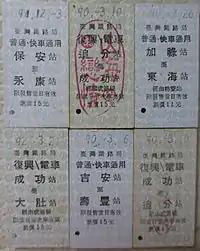 91.12.-3
臺灣鐵路局
普通·快車通用
保安站
至
永康站
限發售當日有效
票價15元
臺灣鐵路局
復興\電車
追分站
至
成功站
票價15元
臺灣鐵路局
普通·快車通用
加祿站
至
東海站
限發售當日有效
票價15元
臺灣鐵路局
復興\電車
成功站
至
大肚站
限發售當日有效
票價15元
90.-3.-6
臺灣鐵路局
普通·快車通用
吉安站
至
壽豐站
限發售當日有效
票價15元
臺灣鐵路局
復興\電車
成功站
至
追分站
票價15元